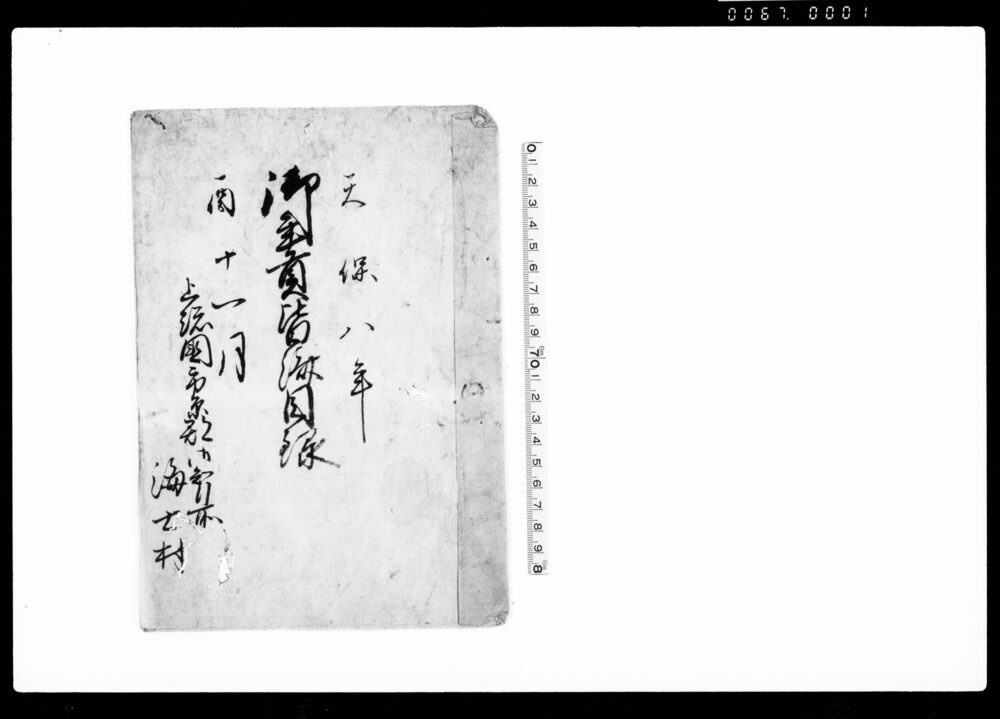 0067. 0001
天保八年
御年貢皆済目録
酉十一月
上総國市原郡
海士村
0 1 2 3 4 5 6 7 8 9 10 1 2 3 4 5 6 7 8 9